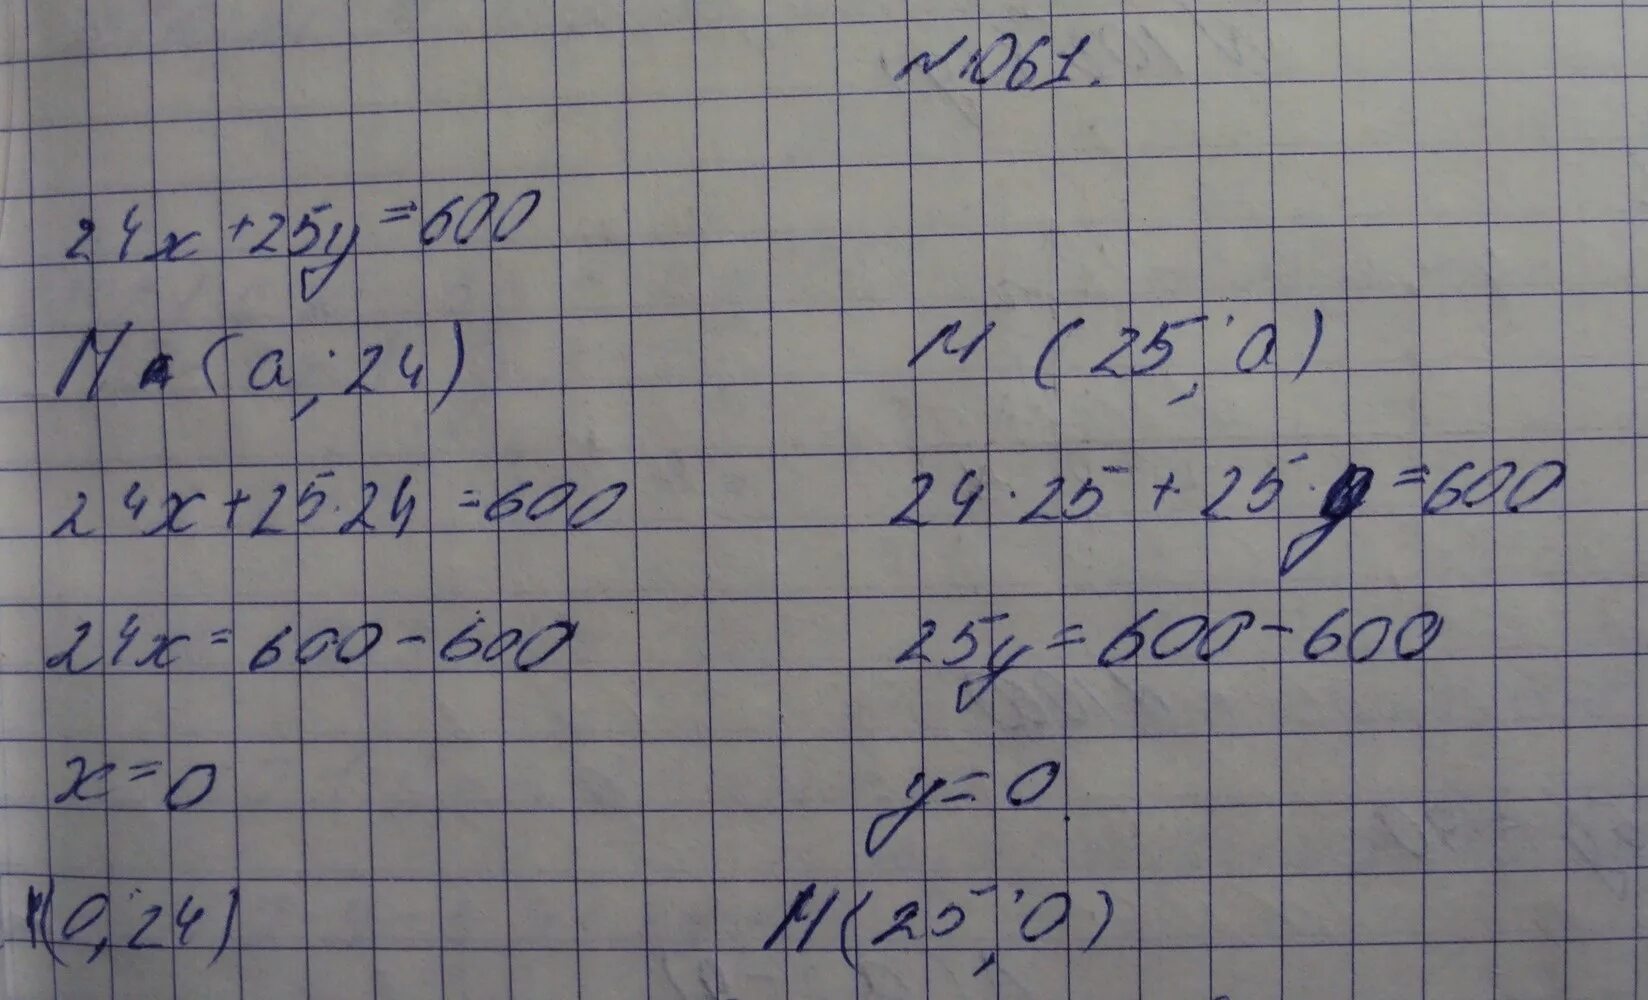 №1061.
24x+25y=600
M (a; 24)
M (25; a)
24x+25·24=600
24·25+25·y=600
24x=600-600
25y=600-600
x=0
y=0
M(0; 24)
M(25; 0)